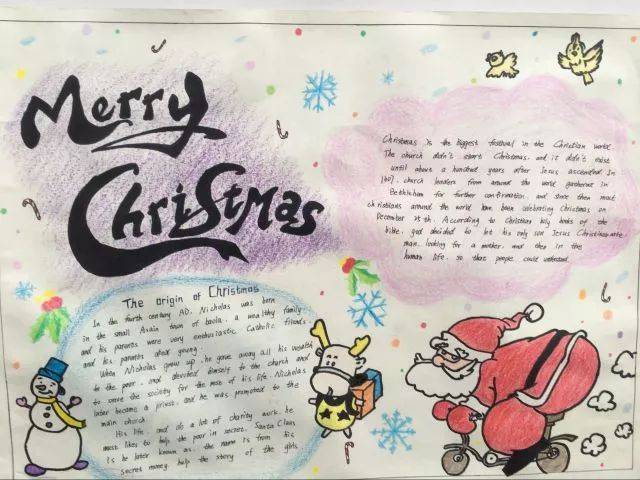 Merry
Christmas
Christmas is the biggest festival in the Christian world.
The church didn't start Christmas, and it didn't exist
until about a hundred years after Jesus ascended. In
church leaders from around the world gathered in
Bethlehem for further confirmation, and since then most
christians around the world have been celebrating Christmas on
December 25 th. According to Christian holy books of the
bible, god decided to let his only son Jesus Christ
man, looking for a mother, and then in the
human life, so that people could understand
The origin of Christmas
In the fourth century AD, Nicholas was born
in the small Asain town of baola, a wealthy family
and his parents were very enthusiastic Catholic friends
and his parents died young.
When Nicholas grew up, he gave away all his wealth
to the poor, and devoted himself to the church and
to serve the society for the rest of his life. Nicholas
later became a priest, and he was promoted to the
main church
His life, and do a lot of charity work, he
most likes to help the poor in secret. Santa Claus
is he later known as, the name is from his
secret money help the story of the girls